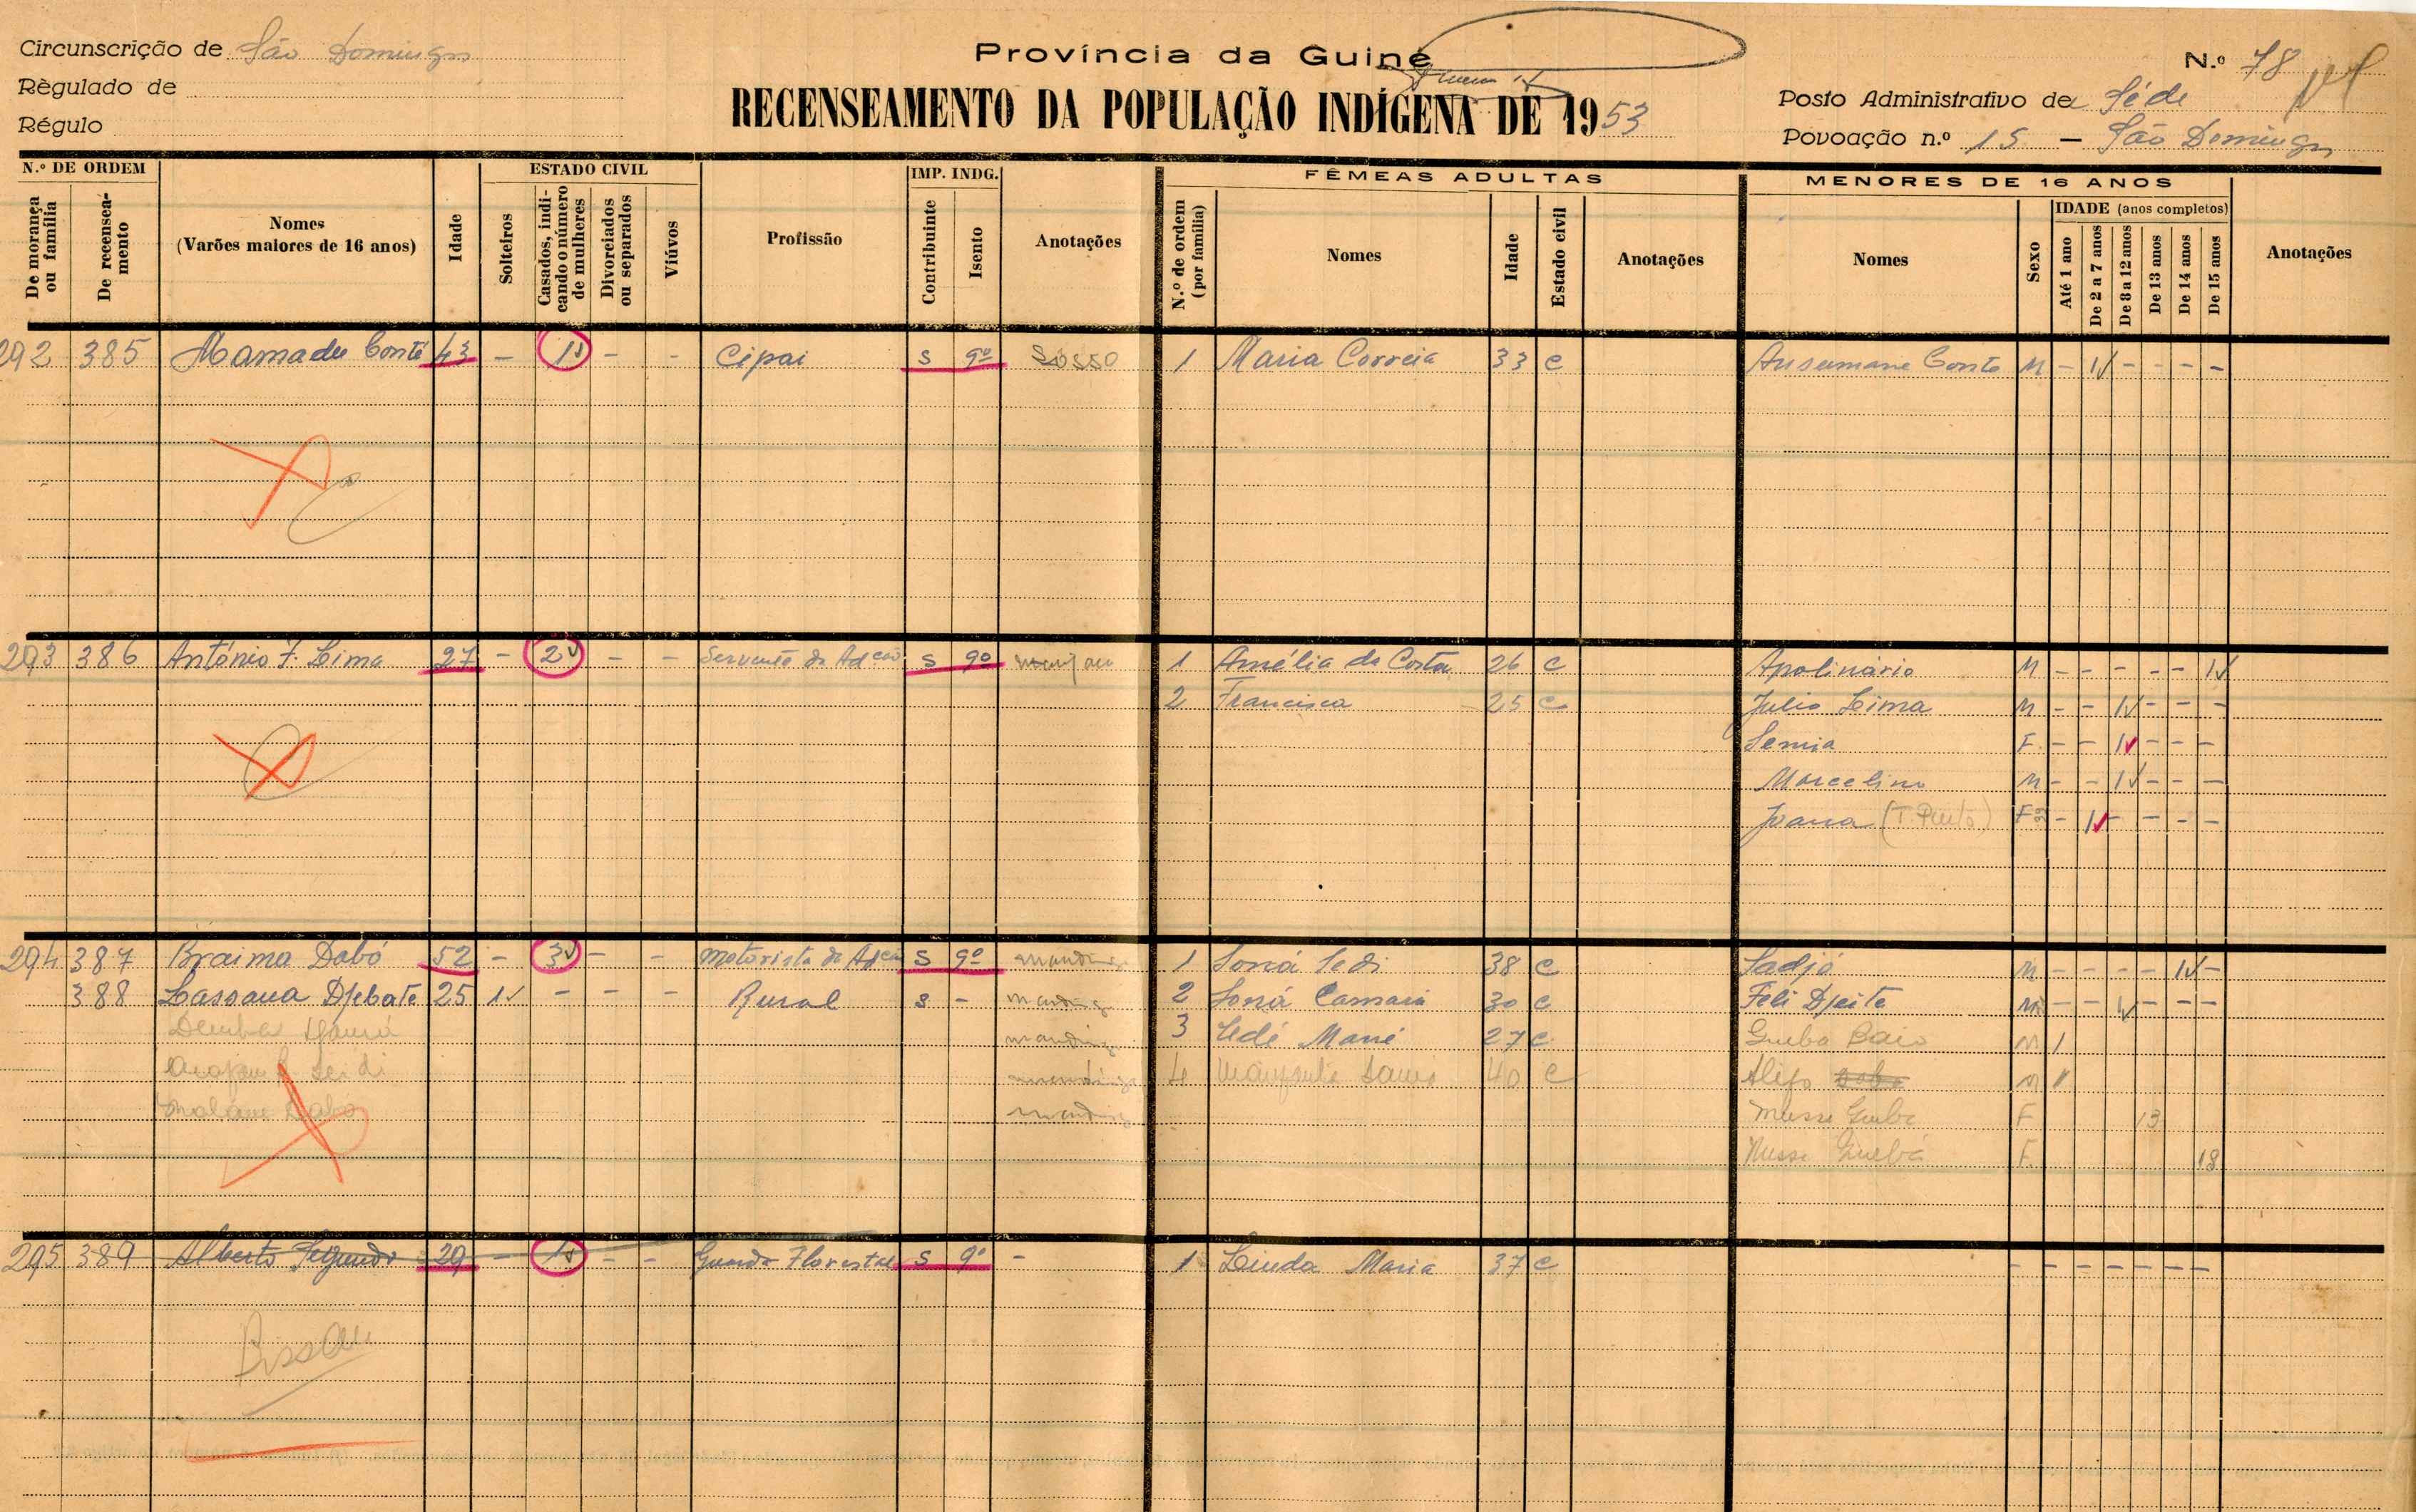 Circunscrição de São Domingos
Província da Guiné
N.º 78
Règulado de
RECENSEAMENTO DA POPULAÇÃO INDÍGENA DE 1953
Posto Administrativo de Séde
Régulo
Povoação n.º 15 – São Domingos
N.º DE ORDEM
ESTADO CIVIL
IMP. INDG.
FÊMEAS ADULTAS
MENORES DE 16 ANOS
IDADE (anos completos)
De morança ou família
De recenseamento
Nomes
(Varões maiores de 16 anos)
Idade
Solteiros
Casados, indicando o número de mulheres
Divorciados ou separados
Viúvos
Profissão
Contribuinte
Isento
Anotações
N.º de ordem (por família)
Nomes
Idade
Estado civil
Anotações
Nomes
Sexo
Até 1 ano
De 2 a 7 anos
De 8 a 12 anos
De 13 anos
De 14 anos
De 15 anos
Anotações
292 385 Mamadu Conté 43 – 1 – – Cipai s 9º Sosso 1 Maria Correia 33 c Ansumane Conte M – 1 – – – –
293 386 António F. Lima 27 – 2 – – Servente da Adção s 9º 1 Amélia da Costa 26 c Apolinário M – – – – – 1
2 Francisca 25 c Julio Lima M – – 1 – – –
F – – 1 – – –
Marcelino M – – 1 – – –
Joana F – 1 – – – –
294 387 Braima Dabó 52 – 3 – – Motorista da Adção s 9º mandinga 1 Soná Sedi 38 c Sadjó M – – – – 1 –
388 Lassana Djebate 25 1 – – – Rural s – mandinga 2 Soná Camará 30 c Feli Djeite M – – 1 – – –
mandinga 3 Sedé Mané 27 c M 1
Seidi mandinga 4 40 c Alifo M
Malam Dabo mandinga F 13
F 18
295 389 Alberto Segundo 29 – 1 – – Guarda Florestal s 9º – 1 Linda Maria 37 c – – – – – – –
Bissau